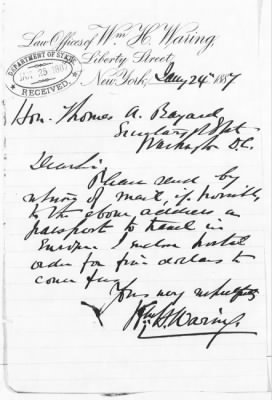 Law Offices of Wm H. Waring,
Liberty Street,
New York, Jany 24th 1887
DEPARTMENT OF STATE
JAN 25 1887
RECEIVED
Hon. Thomas A. Bayard
Secretary of State
Washington D.C.
Dear Sir
Please send by
return of mail, if possible
to the above address a
passport to travel in
Europe I enclose postal
order for five dollars to
cover fees
Yours very respectfully
Wm H. Waring